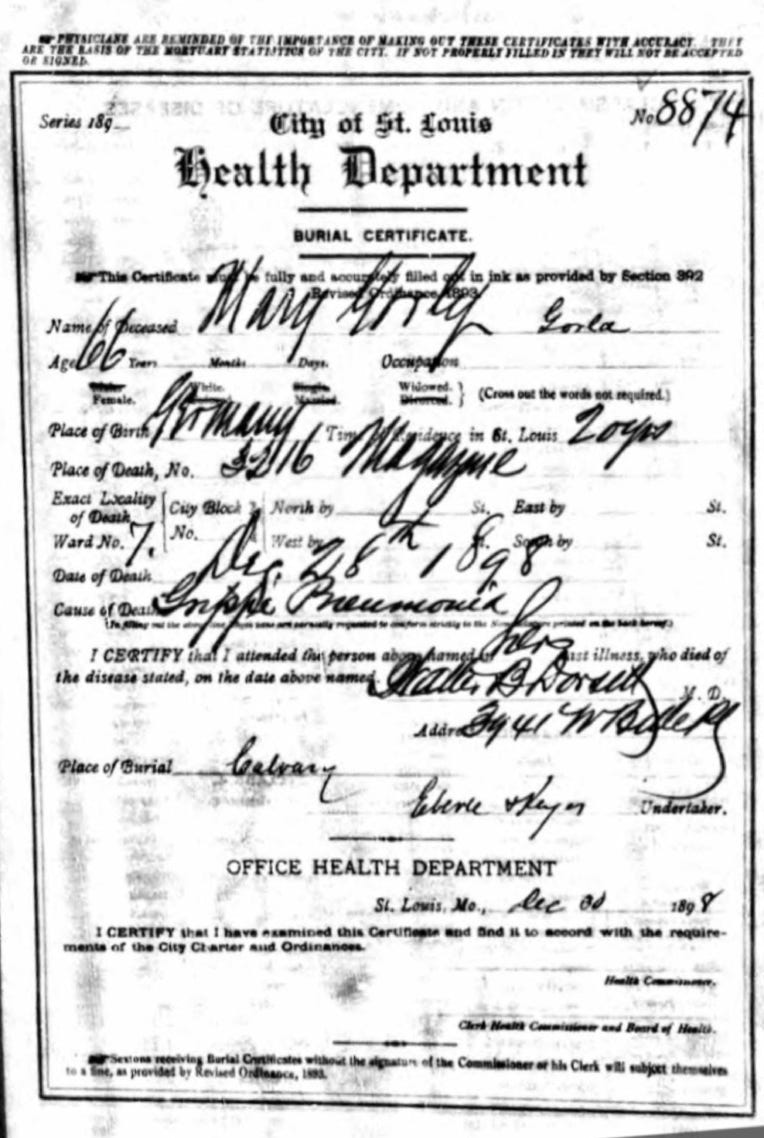 PHYSICIANS ARE REMINDED OF THE IMPORTANCE OF MAKING OUT THESE CERTIFICATES WITH ACCURACY. THEY
ARE THE BASIS OF THE MORTUARY STATISTICS OF THE CITY. IF NOT PROPERLY FILLED IN THEY WILL NOT BE ACCEPTED
OR SIGNED.
Series 189 No 8874
City of St. Louis
Health Department
BURIAL CERTIFICATE.
This Certificate must be fully and accurately filled out in ink as provided by Section 392
Revised Ordinance, 1893
Name of Deceased Mary Gorla
Age 66 Years Months Days. Occupation
Male White. Single Widowed.
Female. Married Divorced. } (Cross out the words not required.)
Place of Birth Germany Time of Residence in St. Louis 20 yrs
Place of Death, No. 3216 Magazine
Exact Locality of Death { City Block No. } North by St. East by St.
Ward No. 7, West by St. South by St.
Date of Death Dec. 28th 1898
Cause of Death Grippe Pneumonia
I CERTIFY that I attended the person above named in her last illness, who died of
the disease stated, on the date above named. Walter B Dorsett M. D.
Address 3941 W Belle Pl
Place of Burial Calvary
Eberle & Keyes Undertaker.
OFFICE HEALTH DEPARTMENT
St. Louis, Mo., Dec 30 1898
I CERTIFY that I have examined this Certificate and find it to accord with the require-
ments of the City Charter and Ordinances.
Health Commissioner.
Clerk Health Commissioner and Board of Health.
Sextons receiving Burial Certificates without the signature of the Commissioner or his Clerk will subject themselves
to a fine, as provided by Revised Ordinance, 1893.